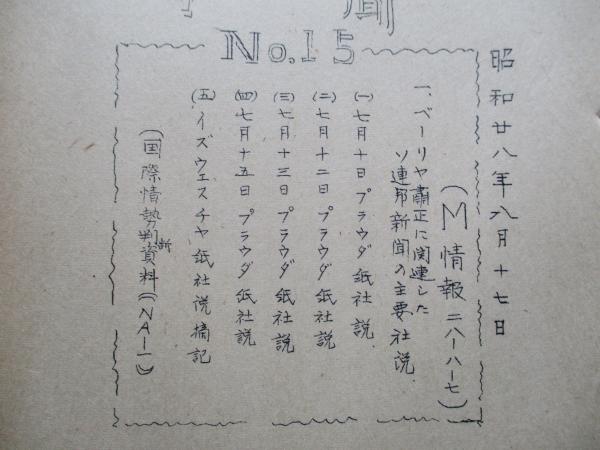 聞
No.15
昭和廿八年八月十七日
(M情報二八ー八ー七)
一、ベーリヤ粛正に関連した
ソ連邦新聞の主要社説
(一)七月十日プラウダ紙社説
(二)七月十二日プラウダ紙社説
(三)七月十三日プラウダ紙社説
(四)七月十五日プラウダ紙社説
(五)イズウェスチヤ紙社説摘記
(国際情勢判断資料(NAー一))